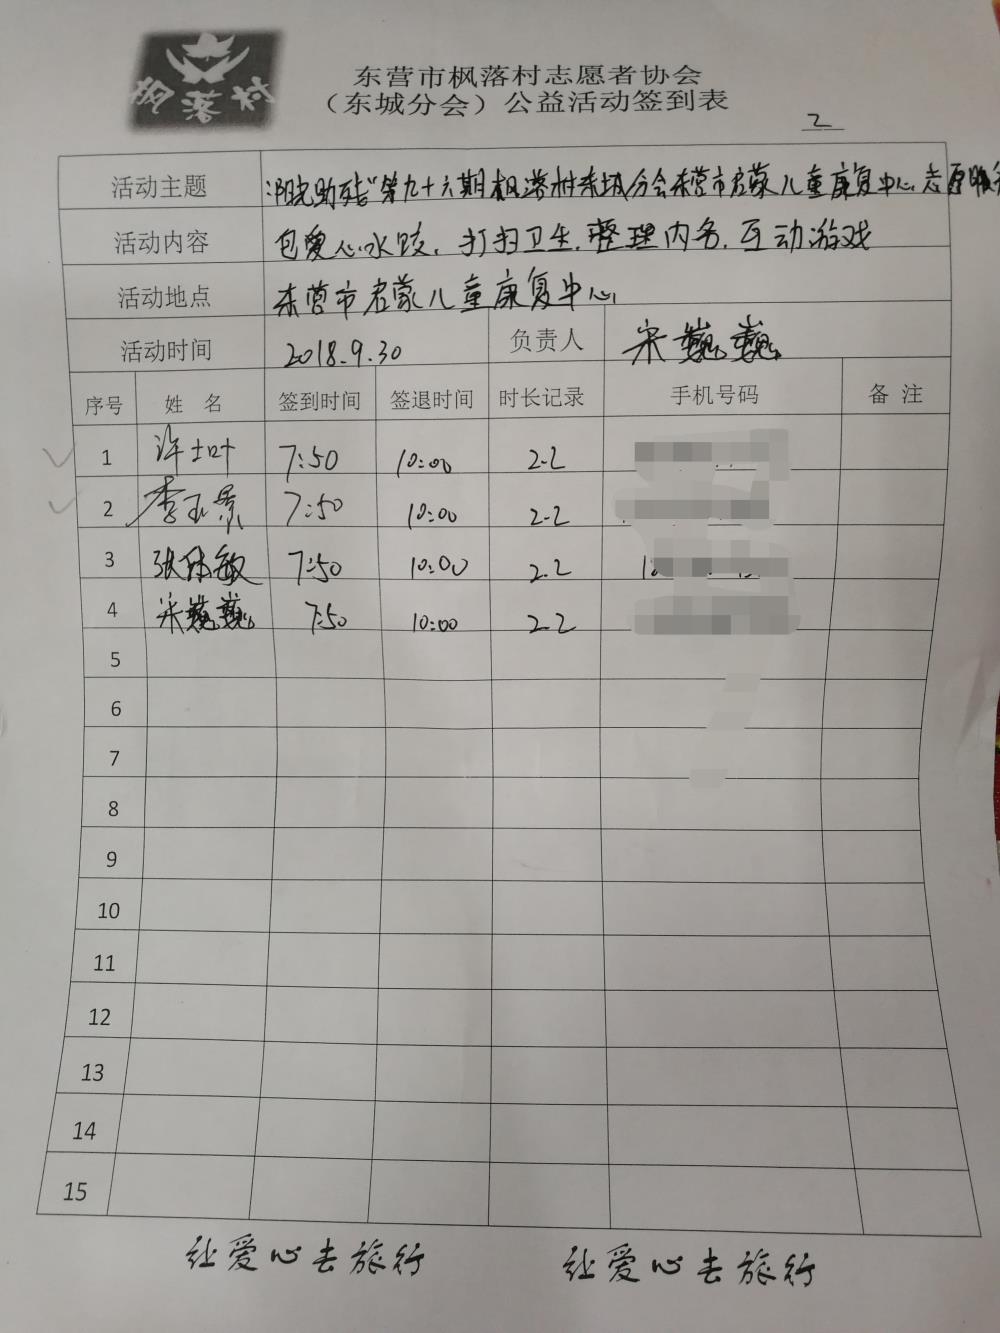 枫落村
东营市枫落村志愿者协会
（东城分会）公益活动签到表
2
活动主题 "阳光助残"第九十六期枫落村东城分会东营市启蒙儿童康复中心志愿服务
活动内容 包爱心水饺、打扫卫生、整理内务、互动游戏
活动地点 东营市启蒙儿童康复中心
活动时间 2018.9.30 负责人 宋巍巍
序号 姓 名 签到时间 签退时间 时长记录 手机号码 备 注
1 许士叶 7:50 10:00 2.2
2 李玉景 7:50 10:00 2.2
3 张伟敏 7:50 10:00 2.2
4 宋巍巍 7:50 10:00 2.2
5
6
7
8
9
10
11
12
13
14
15
让爱心去旅行 让爱心去旅行